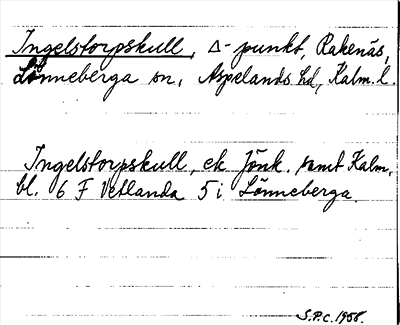 Ingelstorpskull, Δ-punkt, Rakenäs,
Lönneberga sn, Aspelands hd, Kalm. l.
Ingelstorpskull, ek Jönk. samt Kalm,
bl. 6 F Vetlanda 5 i Lönneberga.
S.P.C. 1958.